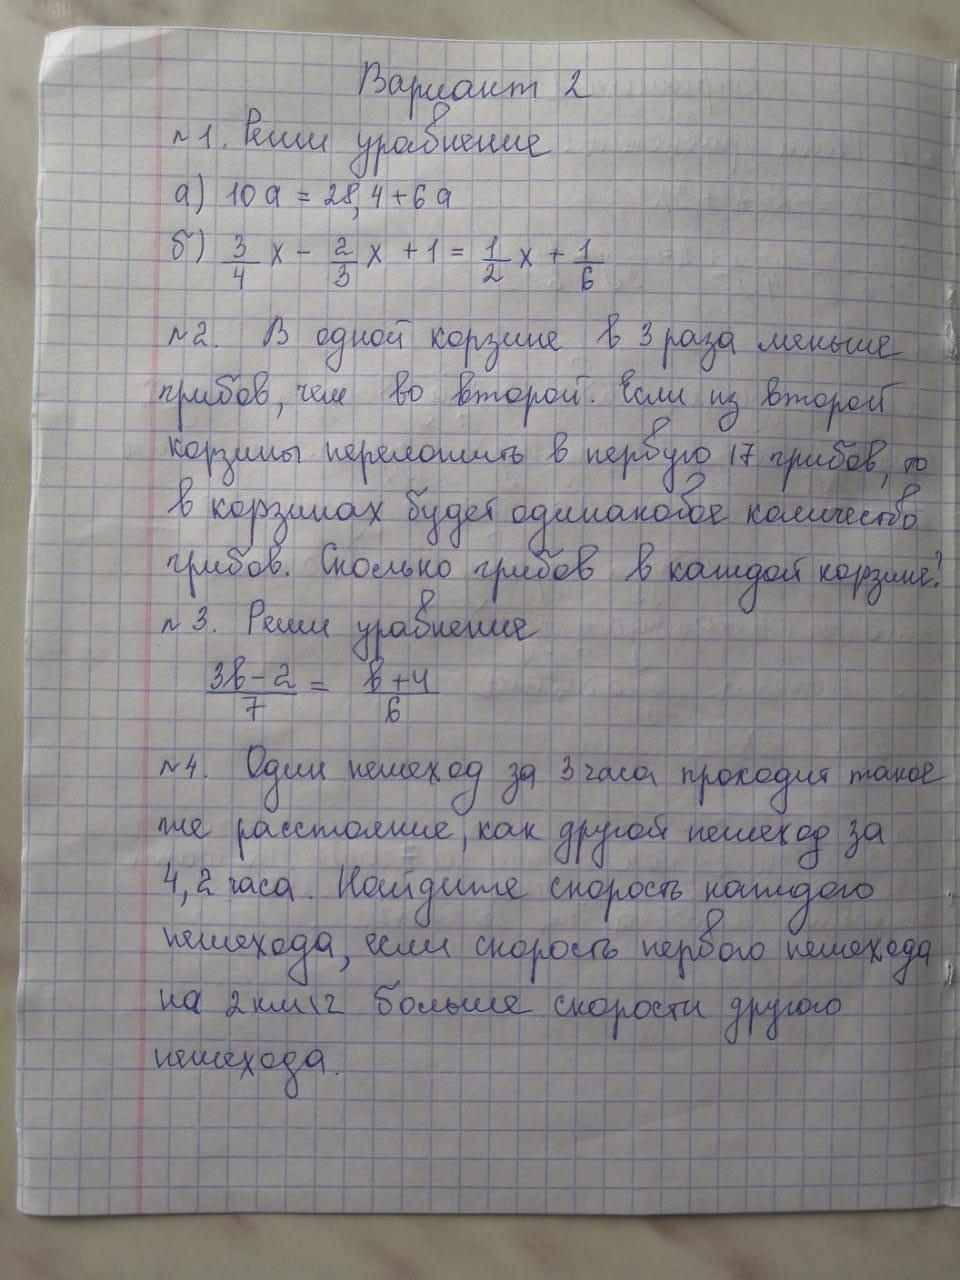 Вариант 2
№1. Реши уравнение
а) 10а = 28,4+6а
б) 3/4 х - 2/3 х + 1 = 1/2 х + 1/6
№2. В одной корзине в 3 раза меньше
грибов, чем во второй. Если из второй
корзины переложить в первую 17 грибов, то
в корзинах будет одинаковое количество
грибов. Сколько грибов в каждой корзине?
№3. Реши уравнение
3в-2/7 = в+4/6
№4. Один пешеход за 3 часа проходит такое
же расстояние, как другой пешеход за
4,2 часа. Найдите скорость каждого
пешехода, если скорость первого пешехода
на 2 км/г больше скорости другого
пешехода.